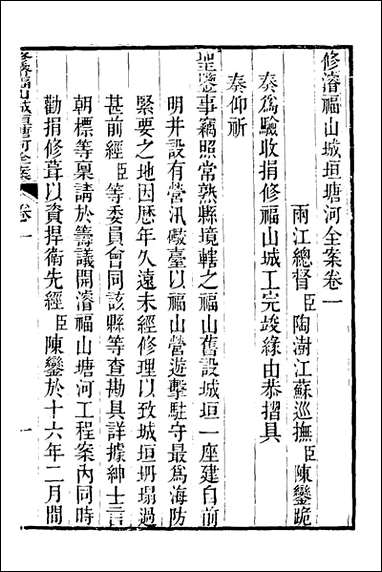 修濬福山城垣塘河全案卷一
兩江總督臣陶澍江蘇巡撫臣陳鑾跪
奏爲驗收捐修福山城工完竣緣由恭摺具
奏仰祈
聖鑒事竊照常熟縣境轄之福山舊設城垣一座建自前
明幷設有營汛礮臺以福山營遊擊駐守最爲海防
緊要之地因歷年久遠未經修理以致城垣坍塌過
甚前經臣等委員會同該縣等查勘具詳據紳士言
朝標等稟請於籌議開濬福山塘河工程案內同時
勸捐修葺以資捍衛先經臣陳鑾於十六年二月間
修濬福山城垣塘河全案
卷一
一